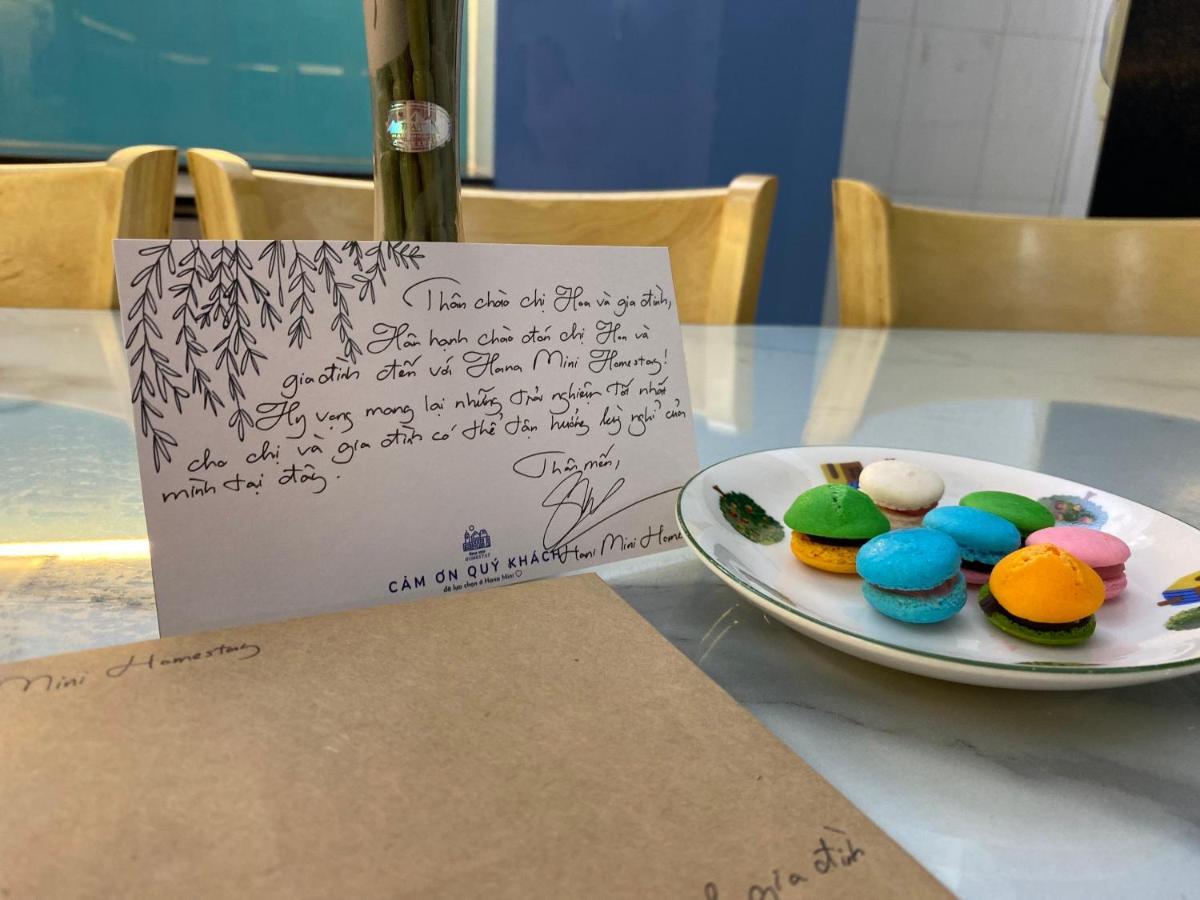 Thân chào chị Hoa và gia đình,
Hân hạnh chào đón chị Hoa và
gia đình đến với Hana Mini Homestay!
Hy vọng mang lại những trải nghiệm tốt nhất
cho chị và gia đình có thể tận hưởng kỳ nghỉ của
mình tại đây.
Thân mến,
Hani Mini Home
HOMESTAY
CẢM ƠN QUÝ KHÁCH
đã lựa chọn ở Hana Mini ♡
Mini Homestay
gia đình